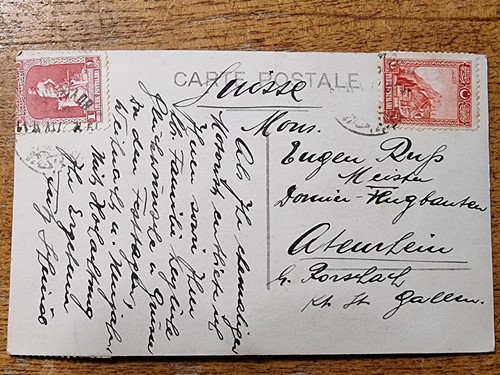 CARTE POSTALE
Suisse
Mons.
Eugen Ruß
Meister
Dornier-Flugbauten
Atenrhein
b. Rorschach
Kt. St. Gallen.
Als Ihr ehemaliger
entbiete ich
Ihnen sowie Ihrer
lb. Familie
Glückwünsche u. Grüsse
zu den Festtagen,
Weihnacht u. Neujahr,
Mit Hochachtung
Ihr Ergebener
Fritz